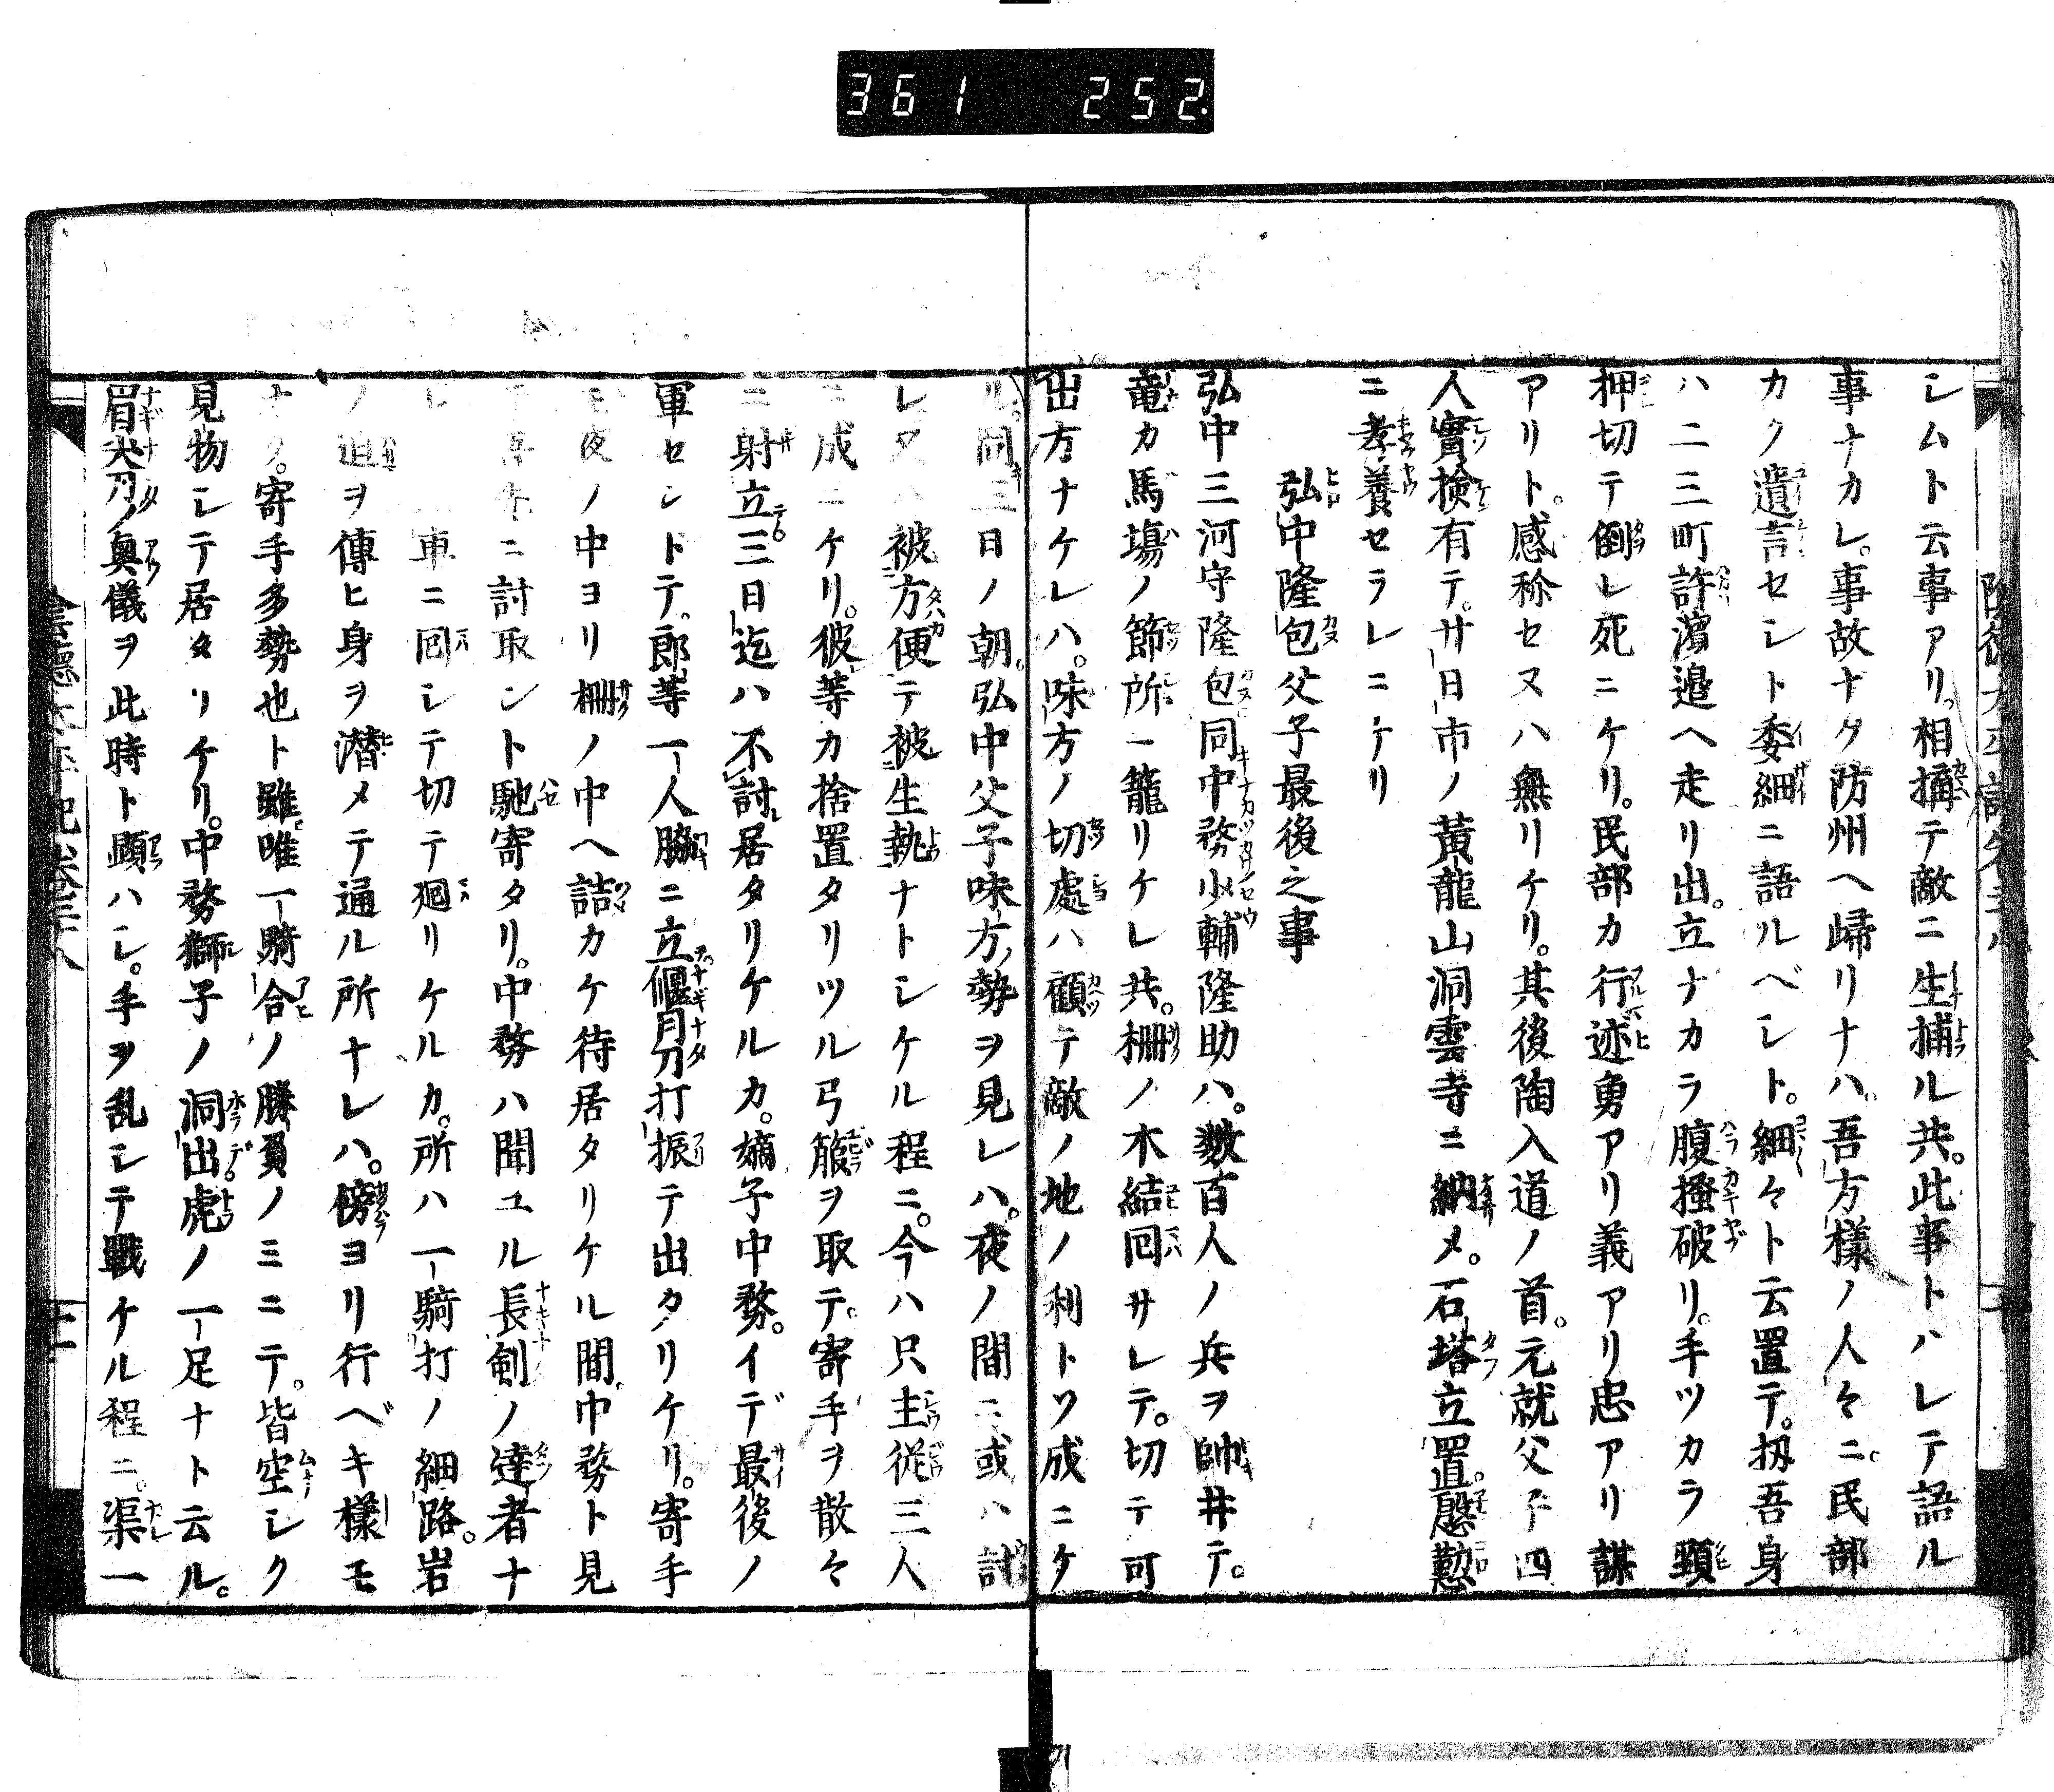 361 252
シムト云事アリ。相構テ敵ニ生捕ル共。此事トハレテ語ル
事ナカレ。事故ナク防州ヘ帰リナハ。吾方様ノ人々ニ。民部
カク遺言セシト委細ニ語ルベシト。細々ト云置テ。扨吾身
ハ二三町許濱邉ヘ走リ出。立ナカラ腹搔破リ。手ツカラ頸
押切テ倒レ死ニケリ。民部カ行迹勇アリ義アリ忠アリ謀
アリト。感称セヌハ無リケリ。其後陶入道ノ首。元就父子四
人實撿有テ。廿日市ノ黃龍山洞雲寺ニ納メ。石塔立置。慇懃
ニ孝養セラレニケリ
弘中隆包父子最後之事
弘中三河守隆包同中務少輔隆助ハ。数百人ノ兵ヲ帥井テ。
竜カ馬場ノ節所ニ籠リケレ共。柵ノ木結回サレテ。切テ可
出方ナケレハ。味方ノ切處ハ顧テ敵ノ地ノ利トソ成ニケ
ル。同三日ノ朝。弘中父子味方ノ勢ヲ見レハ。夜ノ間ニ或ハ討
レ又ハ被方便テ被生執ナトシケル程ニ。今ハ只主従三人
ニ成ニケリ。彼等カ捨置タリツル弓箙ヲ取テ。寄手ヲ散々
ニ射立三日迄ハ不討居タリケルカ。嫡子中務。イデ最後ノ
軍セントテ。郎等一人脇ニ立偃月刀打振テ出タリケリ。寄手
モ夜ノ中ヨリ柵ノ中ヘ詰カケ待居タリケル間中務ト見
ニ討取ント馳寄タリ。中務ハ聞ユル長剣ノ達者ナ
レ 車ニ回シテ切テ廻リケルカ。所ハ一騎打ノ細路。岩
ノ迫ヲ傳ヒ身ヲ潜メテ通ル所ナレハ。傍ヨリ行ベキ様モ
ナク。寄手多勢也ト雖。唯一騎合ノ勝負ノミニテ。皆空シク
見物シテ居タリケリ。中務獅子ノ洞出虎ノ一足ナト云ル。
眉尖刀ノ奥儀ヲ此時ト顕ハシ。手ヲ乱シテ戰ケル程ニ。渠一
陰德太平記卷二十八